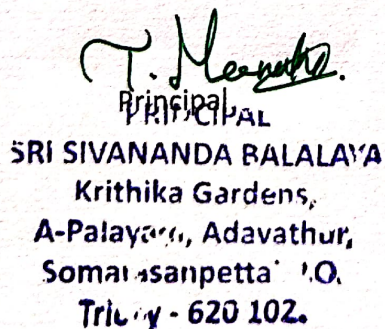 T.
Principal
PRINCIPAL
SRI SIVANANDA BALALAYA
Krithika Gardens,
A-Palayam, Adavathur,
Somarasanpetta P.O.
Trichy - 620 102.